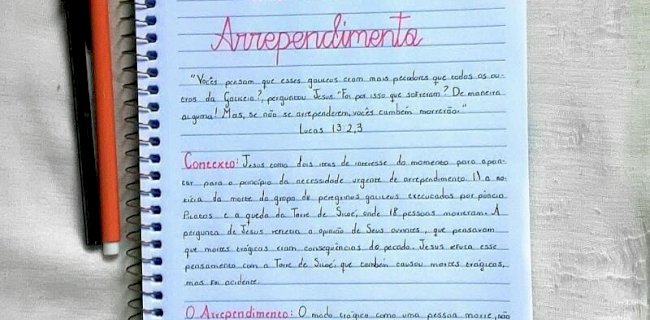 Arrependimento
"Vocês pensam que esses galileus eram mais pecadores que todos os ou-
tros da Galileia?", perguntou Jesus "Foi por isso que sofreram? De maneira
alguma! Mas, se não se arrependerem, vocês também morrerão."
Lucas 13:2,3
Contexto: Jesus toma dois itens de interesse do momento para apon-
tar para o princípio da necessidade urgente de arrependimento. 1) a no-
tícia da morte do grupo de peregrinos galileus executados por pôncio
Pilatos e a queda da Torre de Siloé, onde 18 pessoas morreram. A
pergunta de Jesus refletia a opinião de Seus ouvintes, que pensavam
que mortes trágicas eram consequências do pecado. Jesus refuta esse
pensamento com a Torre de Siloé, que também causou mortes trágicas,
mas foi acidente.
O Arrependimento: O modo trágico como uma pessoa morre, não